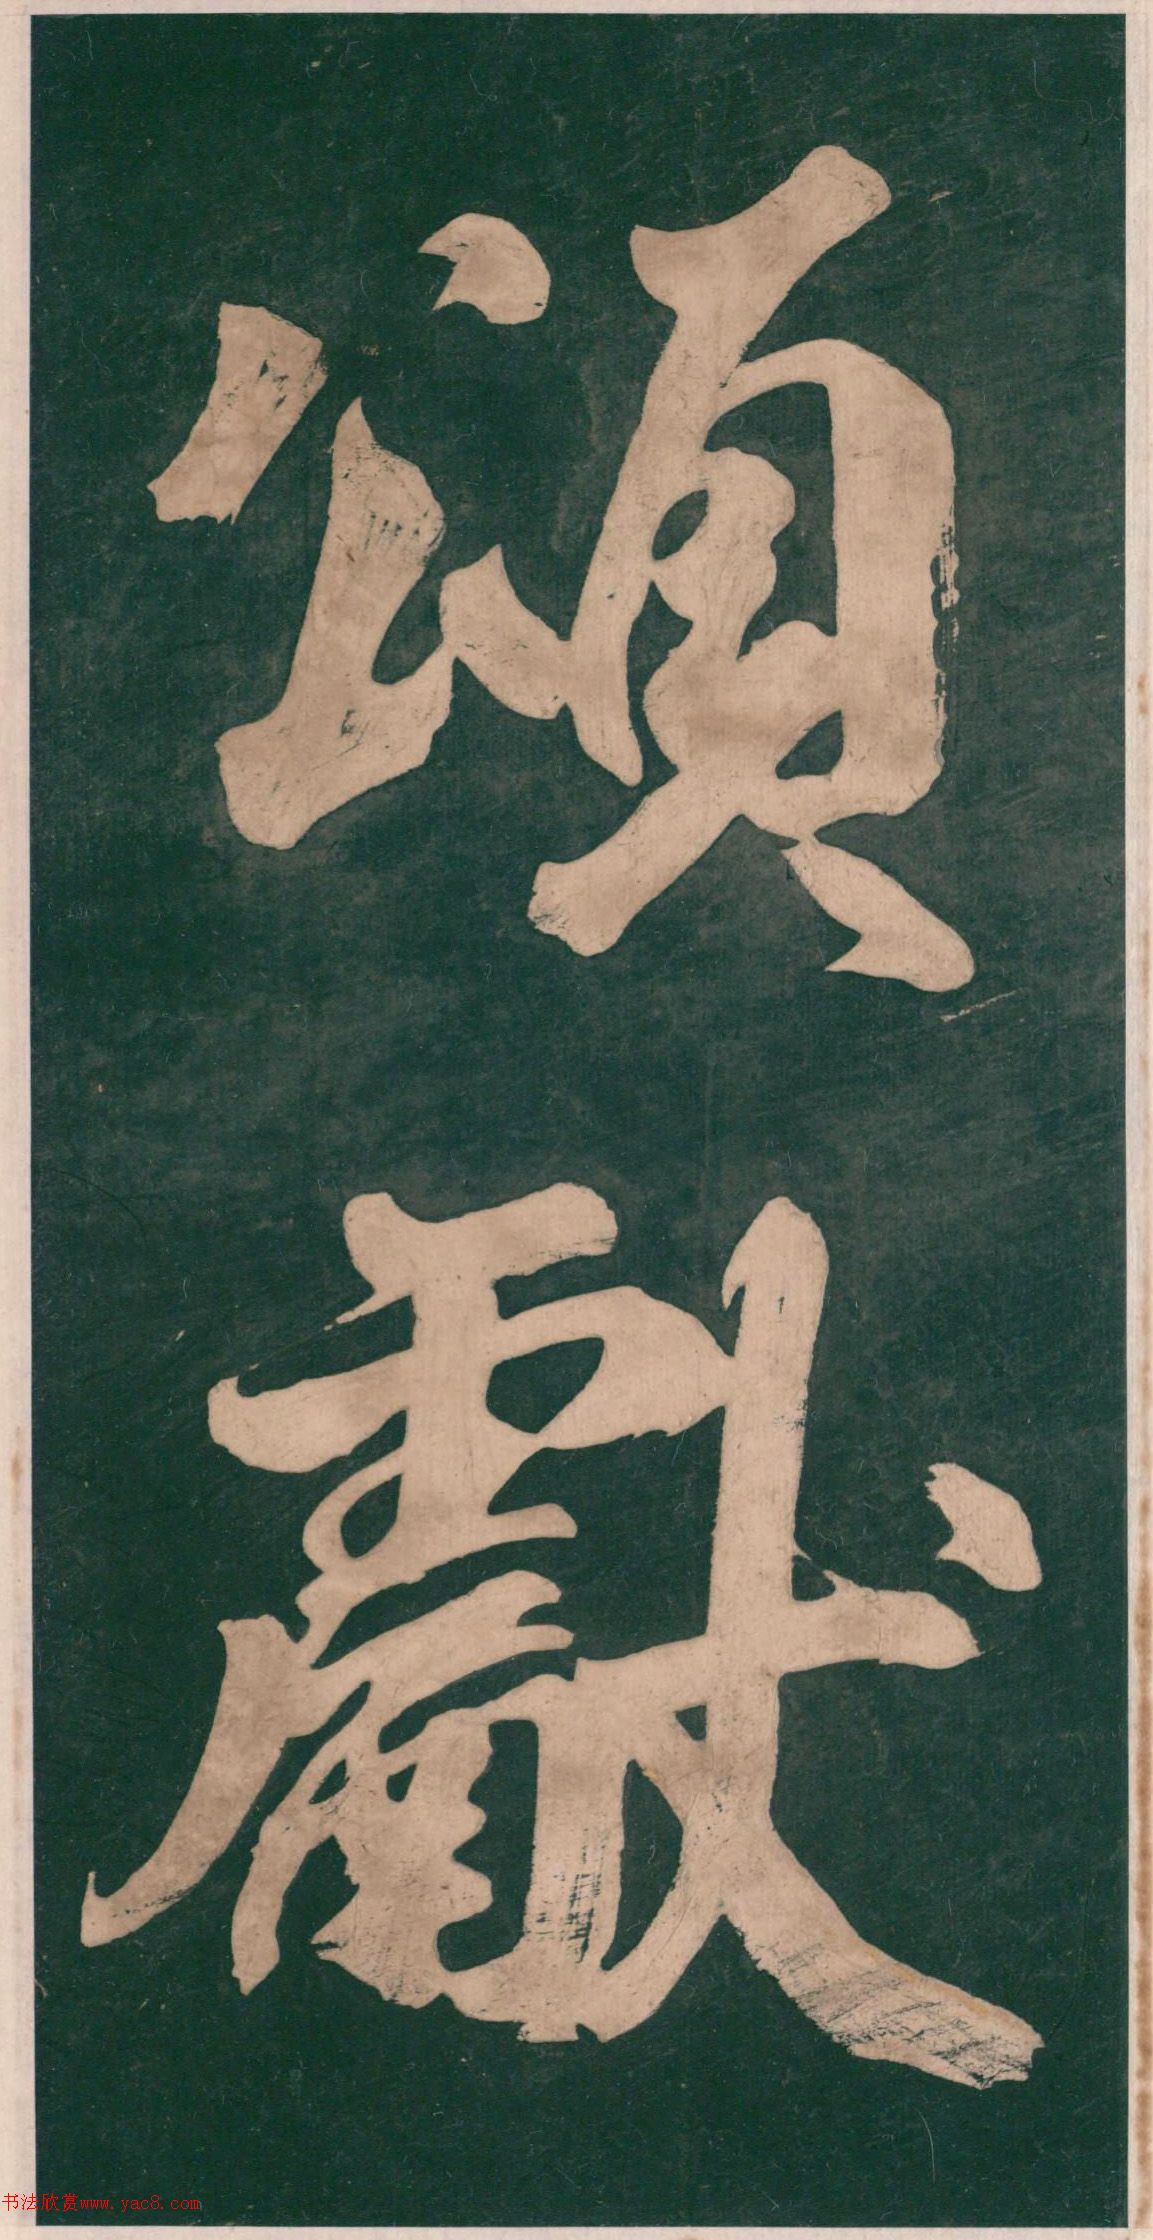 頌獻
书法欣赏www.yac8.com